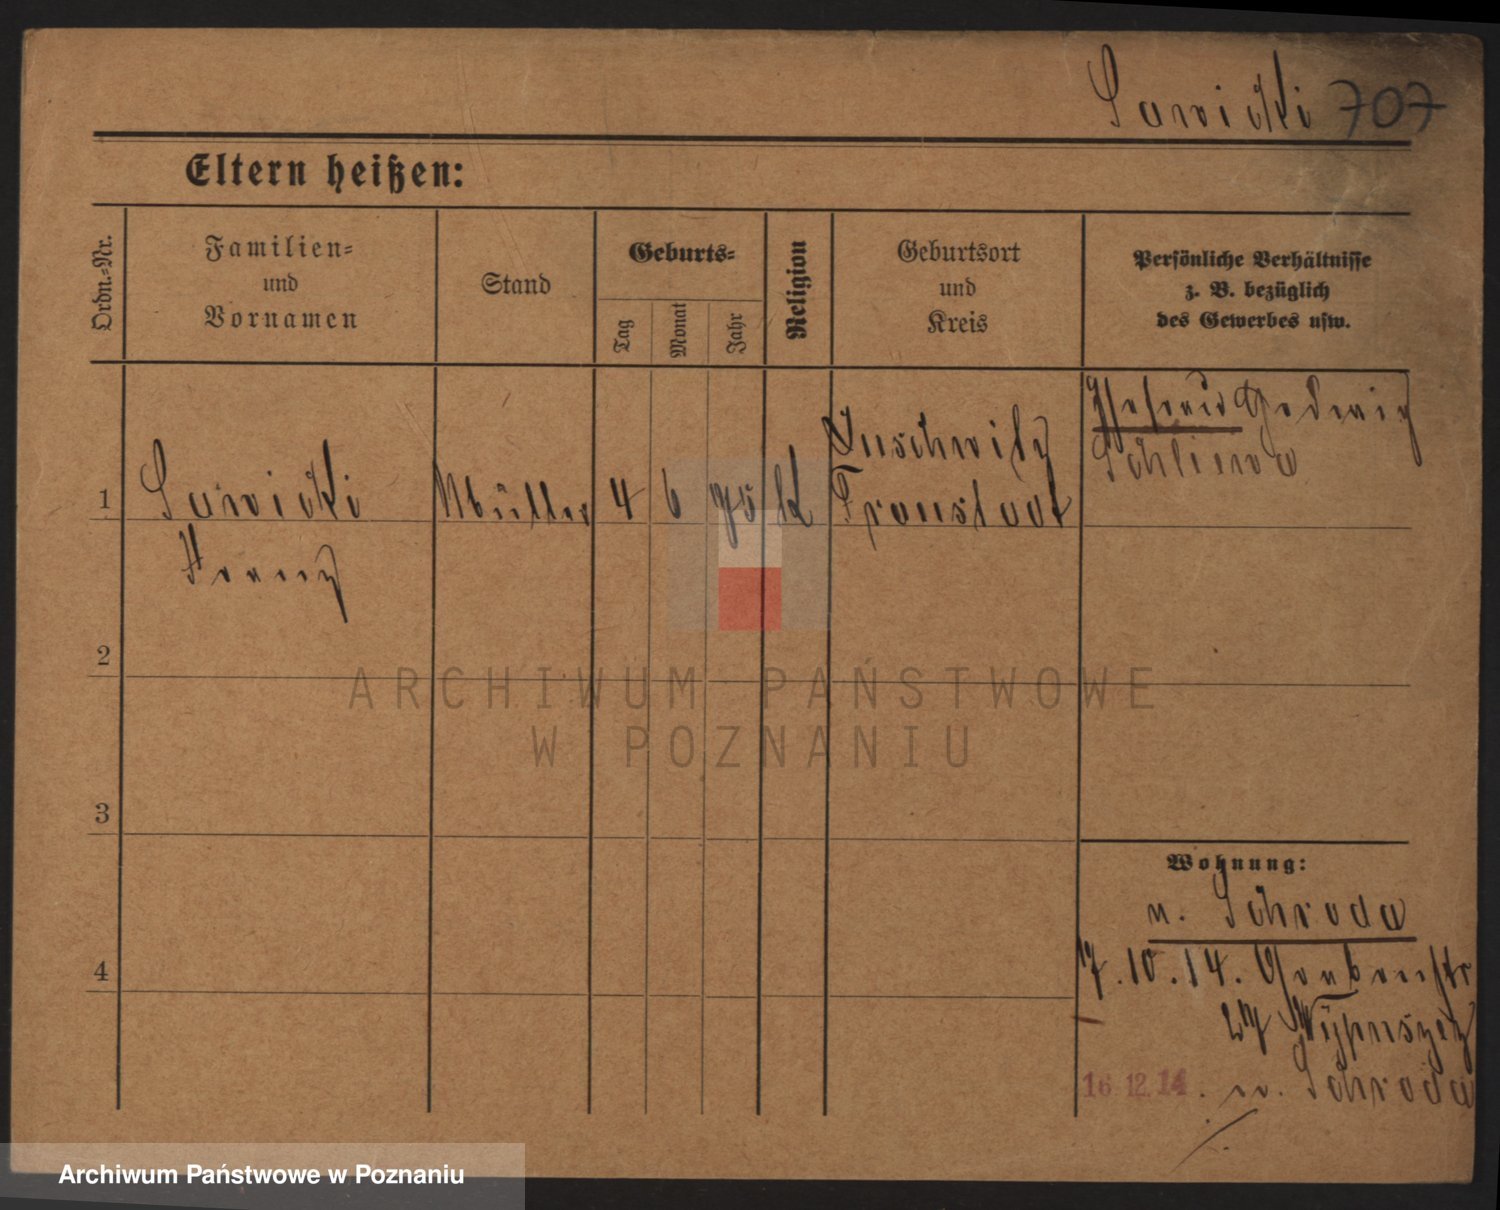 Sawicki 707
Eltern heißen:
Ordn.-Nr.
Familien-
und
Vornamen
Stand
Geburts-
Tag
Monat
Jahr
Religion
Geburtsort
und
Kreis
Persönliche Verhältnisse
z. B. bezüglich
des Gewerbes usw.
1
Sawicki
Franz
Müller
4
6
95
K
Fraustadt
Ehefrau Hedwig
2
3
4
Wohnung:
n. Schroda
17.10.14.
16.12.14. n. Schroda
ARCHIWUM PAŃSTWOWE
W POZNANIU
Archiwum Państwowe w Poznaniu